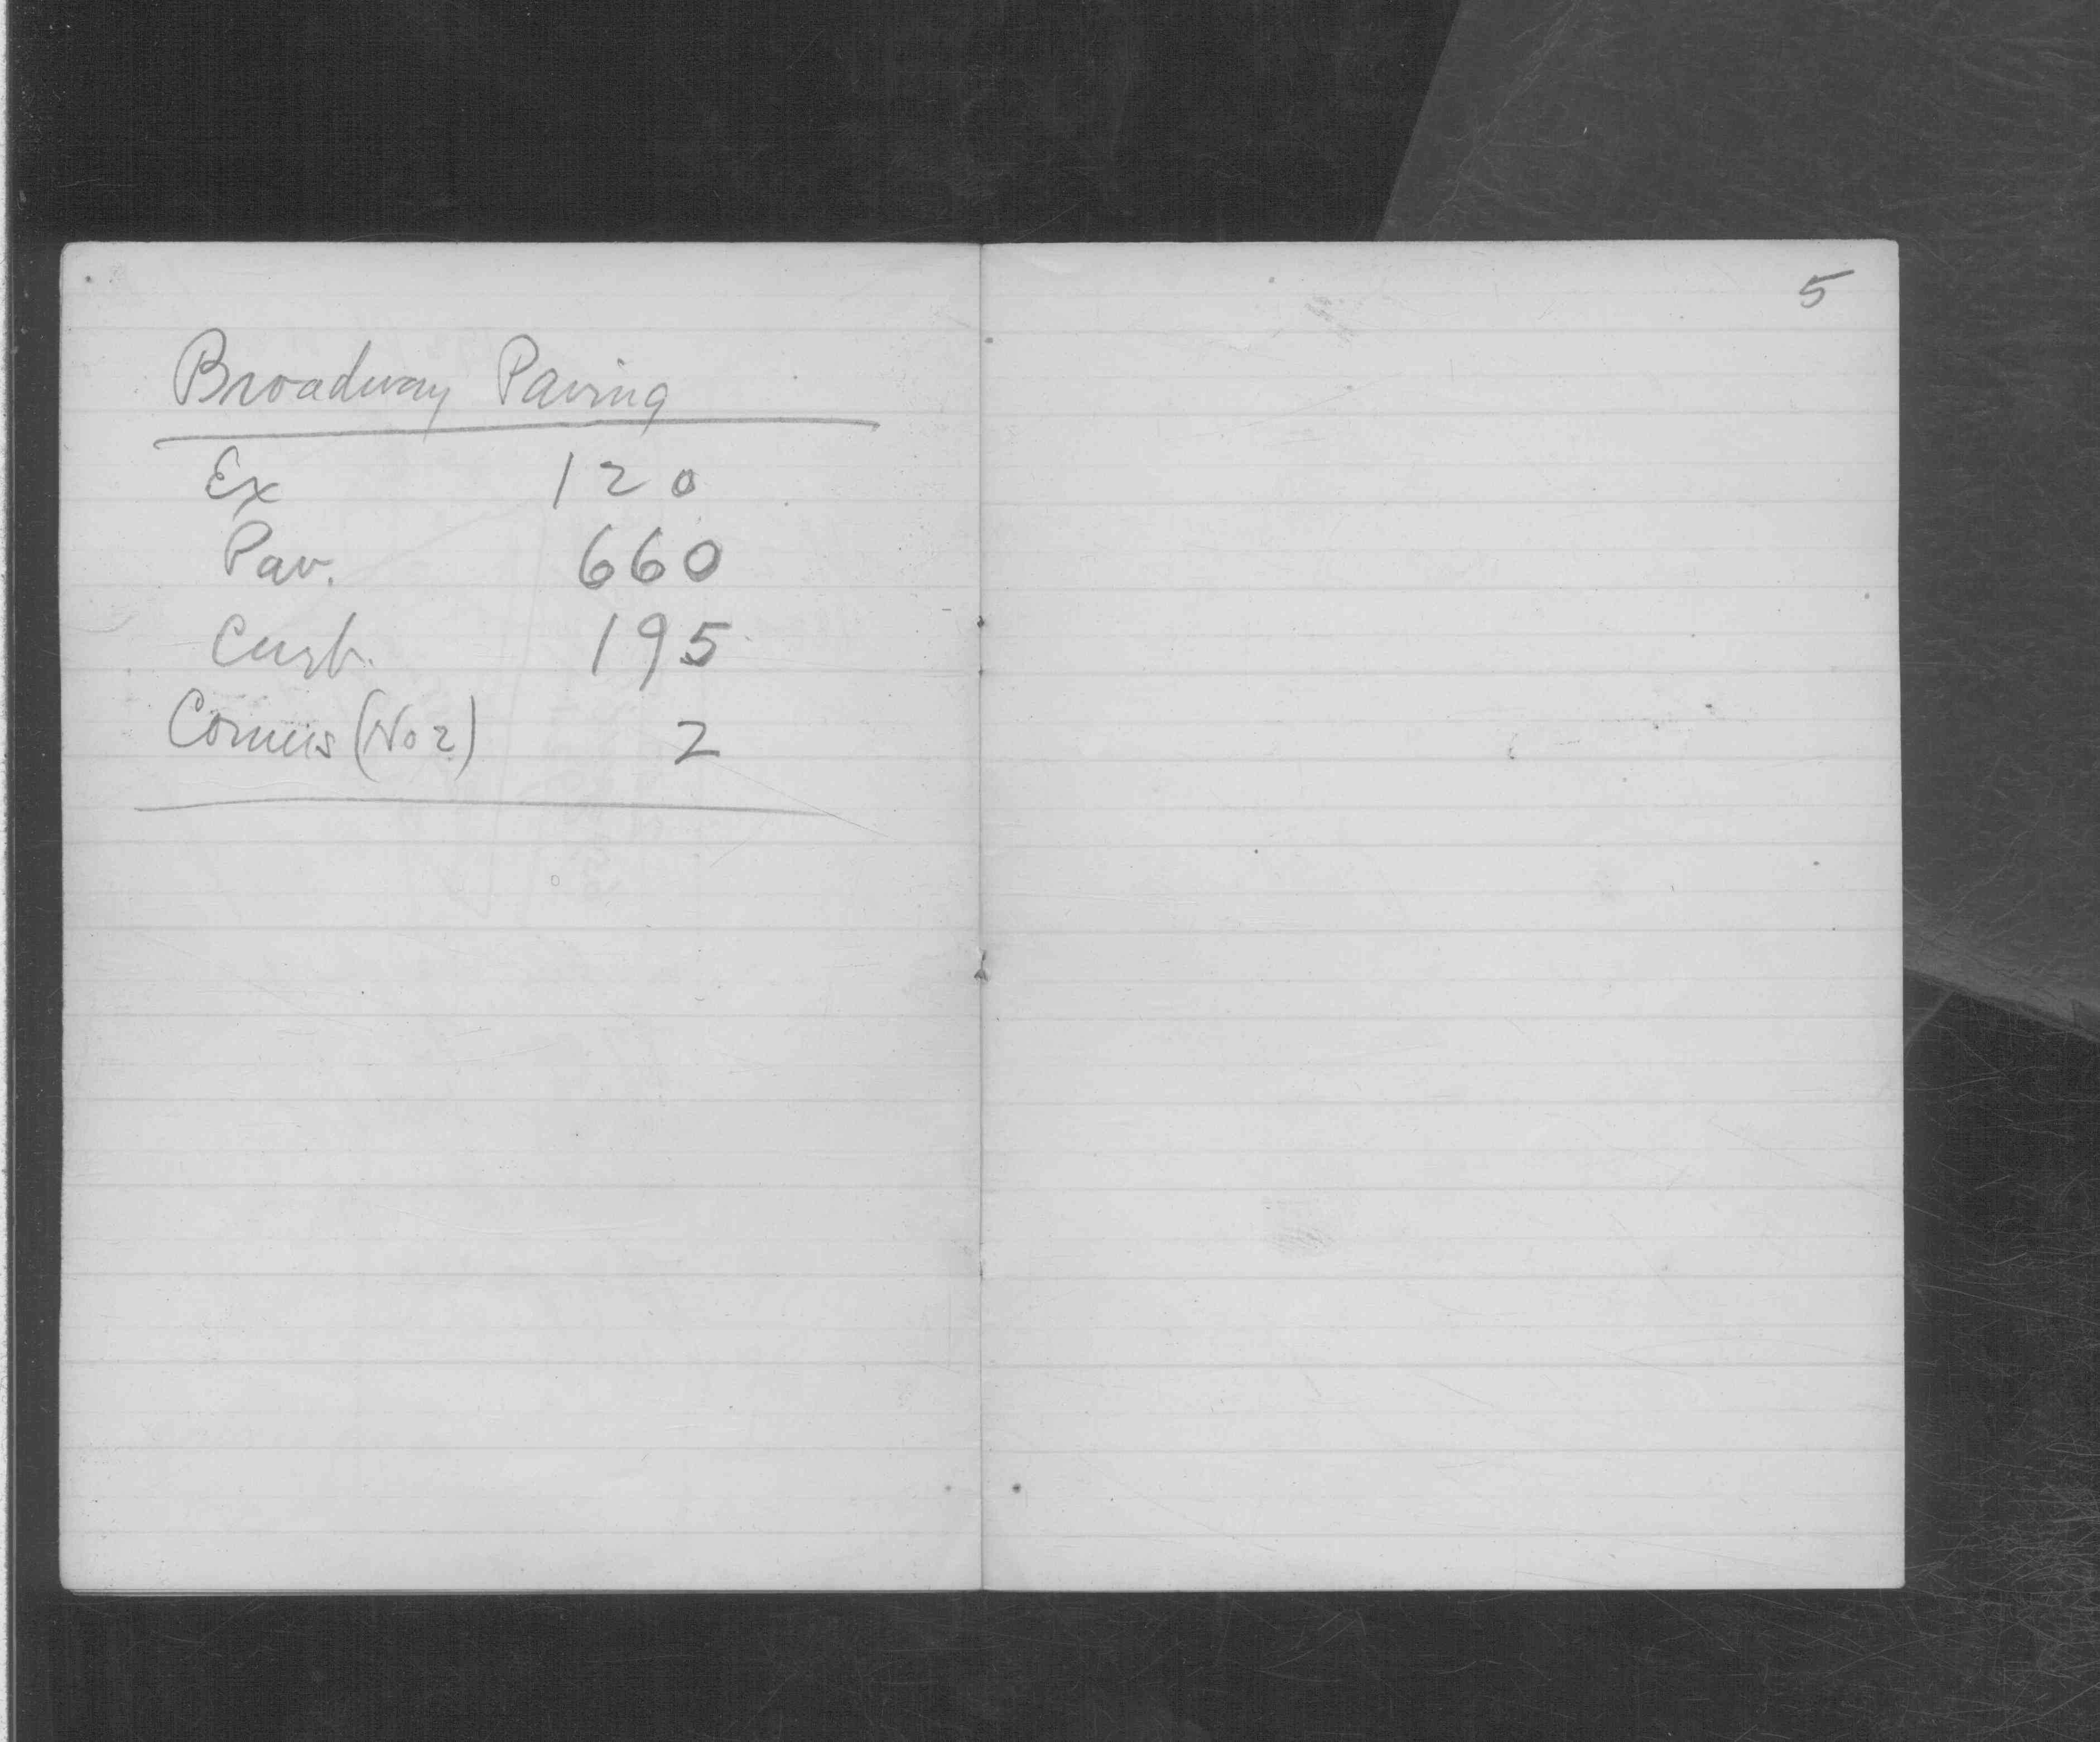 Broadway Paving
Ex 120
Pav. 660
Curb. 195
Corners (No 2) 2
5